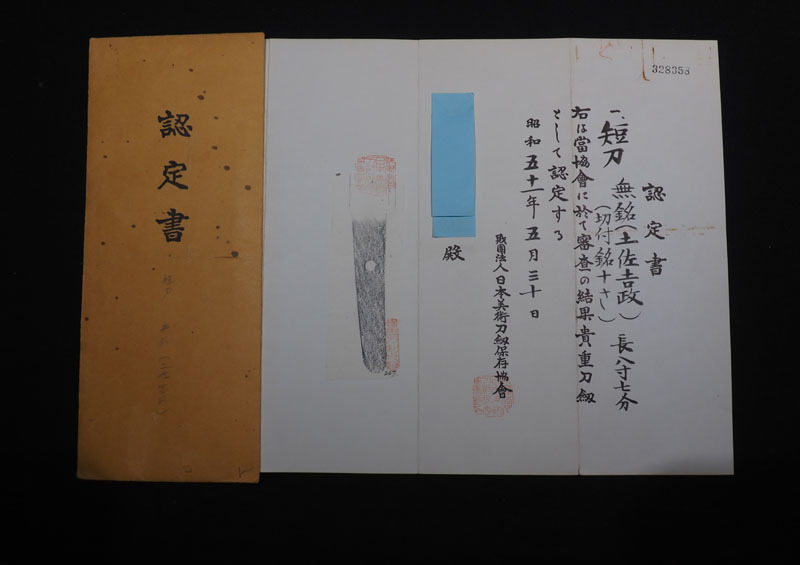 328358
認定書
一、短刀 無銘(土佐吉政) 長八寸七分
(切付銘十さし)
右は當協會に於て審査の結果貴重刀劔
として認定する
昭和五十一年五月三十日
財団法人日本美術刀劔保存協會
殿
認定書